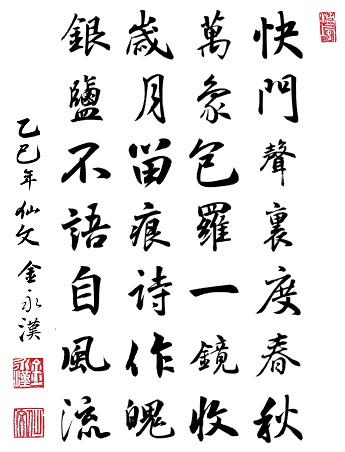 快門聲裏度春秋
萬象包羅一鏡收
歲月留痕詩作魄
銀鹽不語自風流
乙巳年仙文金永漢